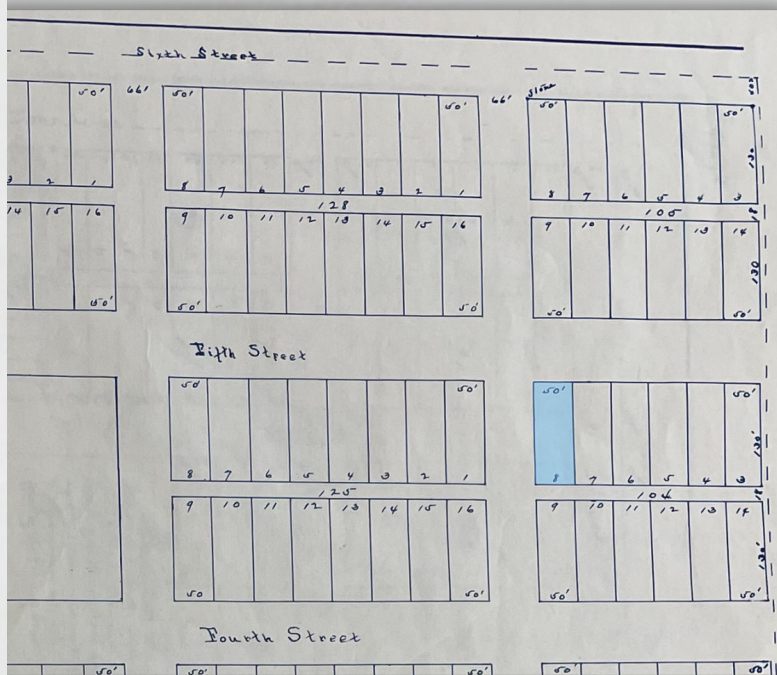 Sixth Street
50' 66' 50' 50' 66' Stone 50' 50'
130
3 2 1 8 7 6 5 4 3 2 1 8 7 6 5 4 3
128 105 18
14 15 16 9 10 11 12 13 14 15 16 9 10 11 12 13 14
130
50' 50' 50' 50' 50'
Fifth Street
50' 50' 50' 50'
130'
8 7 6 5 4 3 2 1 8 7 6 5 4 3
125 104 18
9 10 11 12 13 14 15 16 9 10 11 12 13 14
130'
50 50' 50' 50'
Fourth Street
50' 50' 50' 50' 50'